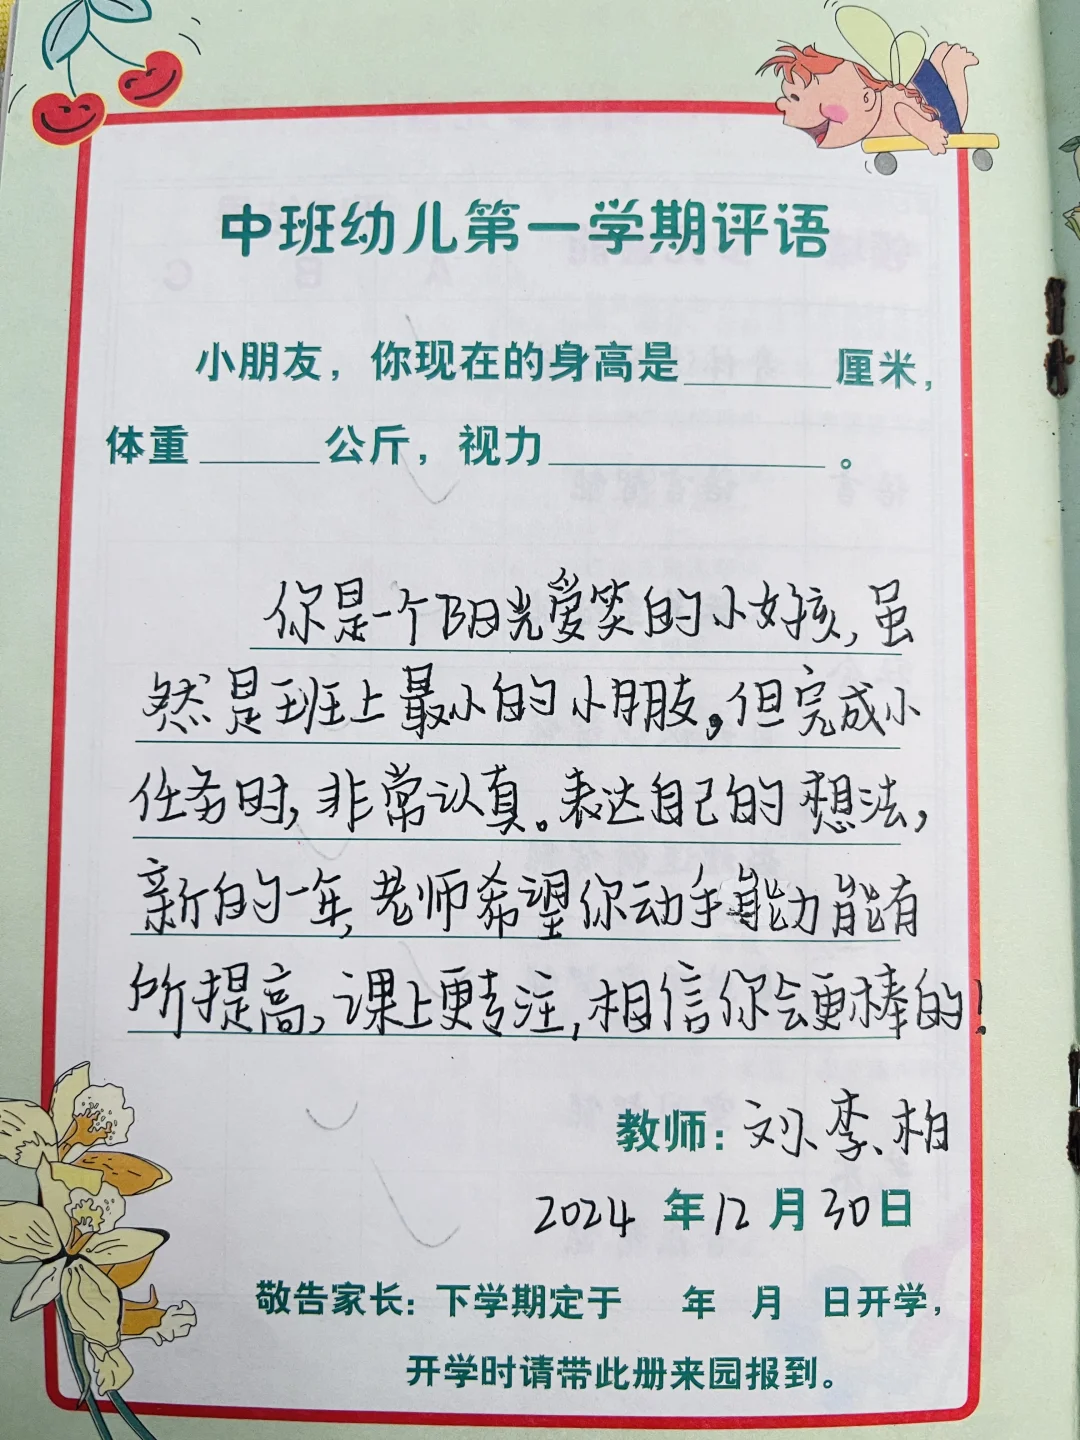 中班幼儿第一学期评语
小朋友，你现在的身高是______厘米，
体重_____公斤，视力___________。
你是一个阳光爱笑的小女孩，虽
然是班上最小的小朋友，但完成小
任务时，非常认真。表达自己的想法，
新的一年，老师希望你动手能力能有
所提高，课上更专注，相信你会更棒的！
教师：刘、李、柏
2024 年12月30日
敬告家长：下学期定于 年 月 日开学，
开学时请带此册来园报到。